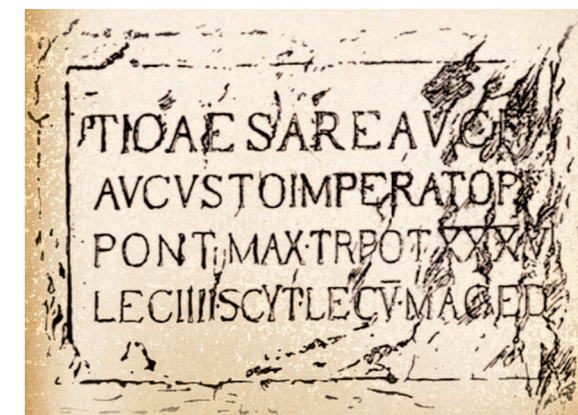 TICAESAREAVGF
AVGVSTOIMPERATOR
PONT·MAX·TRPOT·XXXV
LEGIIIISCYT·LEGV̅·MACED